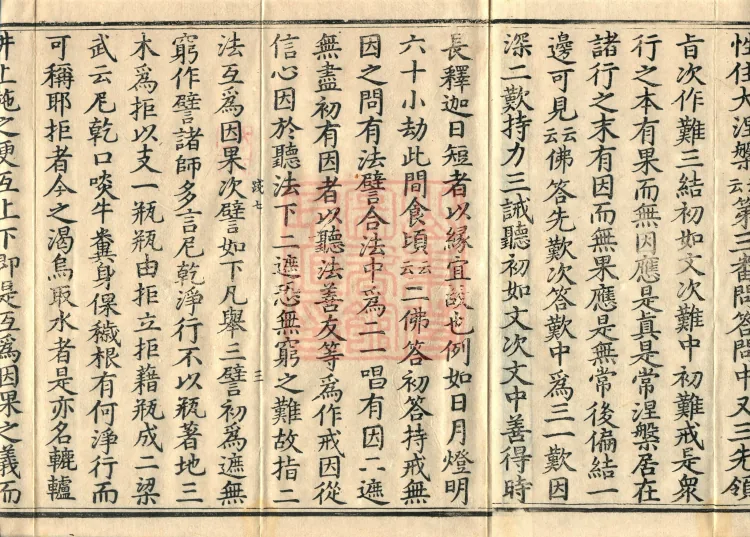 性住大涅槃云云第三番問答問中又三先領
旨次作難三結初如文次難中初難戒是衆
行之本有果而無因應是真是常涅槃居在
諸行之末有因而無果應是無常後偏結一
邊可見云云佛答先歎次答歎中為三一歎因
深二歎持力三誡聽初如文次文中善得時
長釋迦日短者以緣宜故也例如日月燈明
六十小劫此間食頃云云二佛答初答持戒無
因之問有法譬合法中為二一唱有因二遮
無盡初有因者以聽法善友等為作戒因從
信心因於聽法下二遮恐無窮之難故指二
踐七 三
法互為因果次譬如下凡舉三譬初為遮無
窮作譬諸師多言尼乾淨行不以瓶著地三
木為拒以支一瓶瓶由拒立拒藉瓶成二梁
武云尼乾口啖牛糞身倮穢根有何淨行而
可稱耶拒者今之渴烏取水者是亦名轆轤
井上施之更互上下即是互為因果之義而